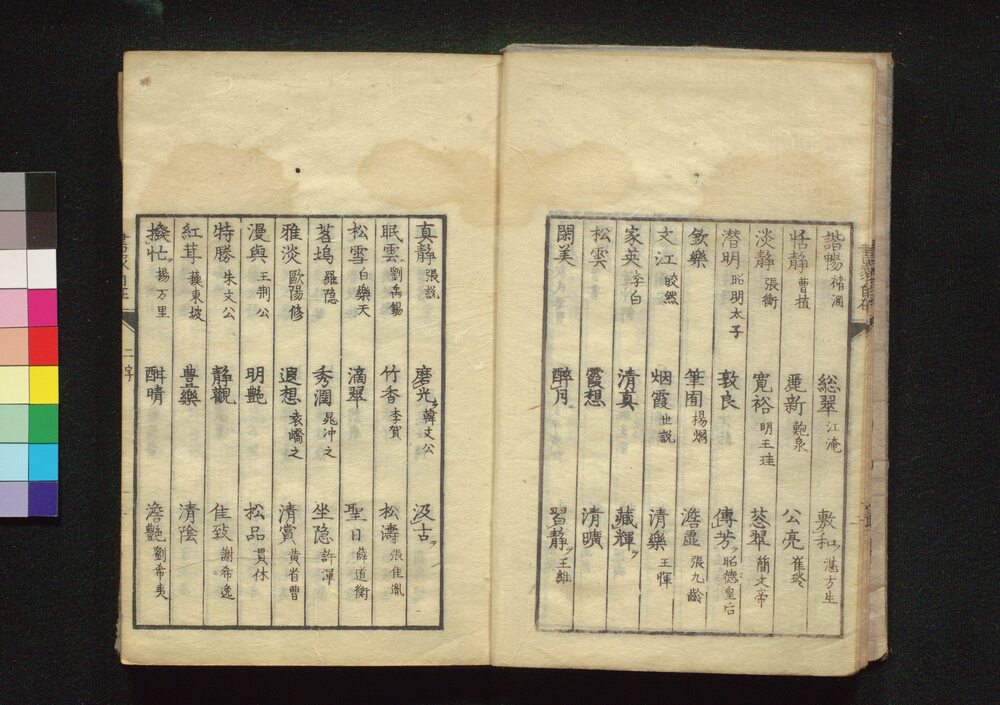 諧暢 褚淵 総翠 江淹 敷和 湛方生
恬静 曹植 麗新 鮑泉 公亮 崔琰
淡静 張衡 寛裕 明王珪 葱翠 簡文帝
潜明 昭明太子 敦良 傳芳 昭德皇后
欽樂 筆囿 揚烱 澹虚 張九齢
文江 皎然 烟霞 世説 清樂 王惲
家英 李白 清真 藏輝
松雲 霞想 清曠
閑美 醉月 習静 王維
真静 張説 磨光 韓文公 汲古
眠雲 劉禹錫 竹香 李賀 松濤 張隹胤
松雪 白樂天 滴翠 聖日 薛道衡
茗塢 羅隐 秀潤 晁冲之 坐隐 許渾
雅淡 歐陽修 遐想 袁嶠之 清賞 黄省曹
漫與 王荆公 明艶 松品 貫休
特勝 朱文公 静觀 佳致 謝希逸
紅茸 蘓東坡 豊樂 清陰
撥忙 揚万里 酣晴 澹艶 劉希夷
二字